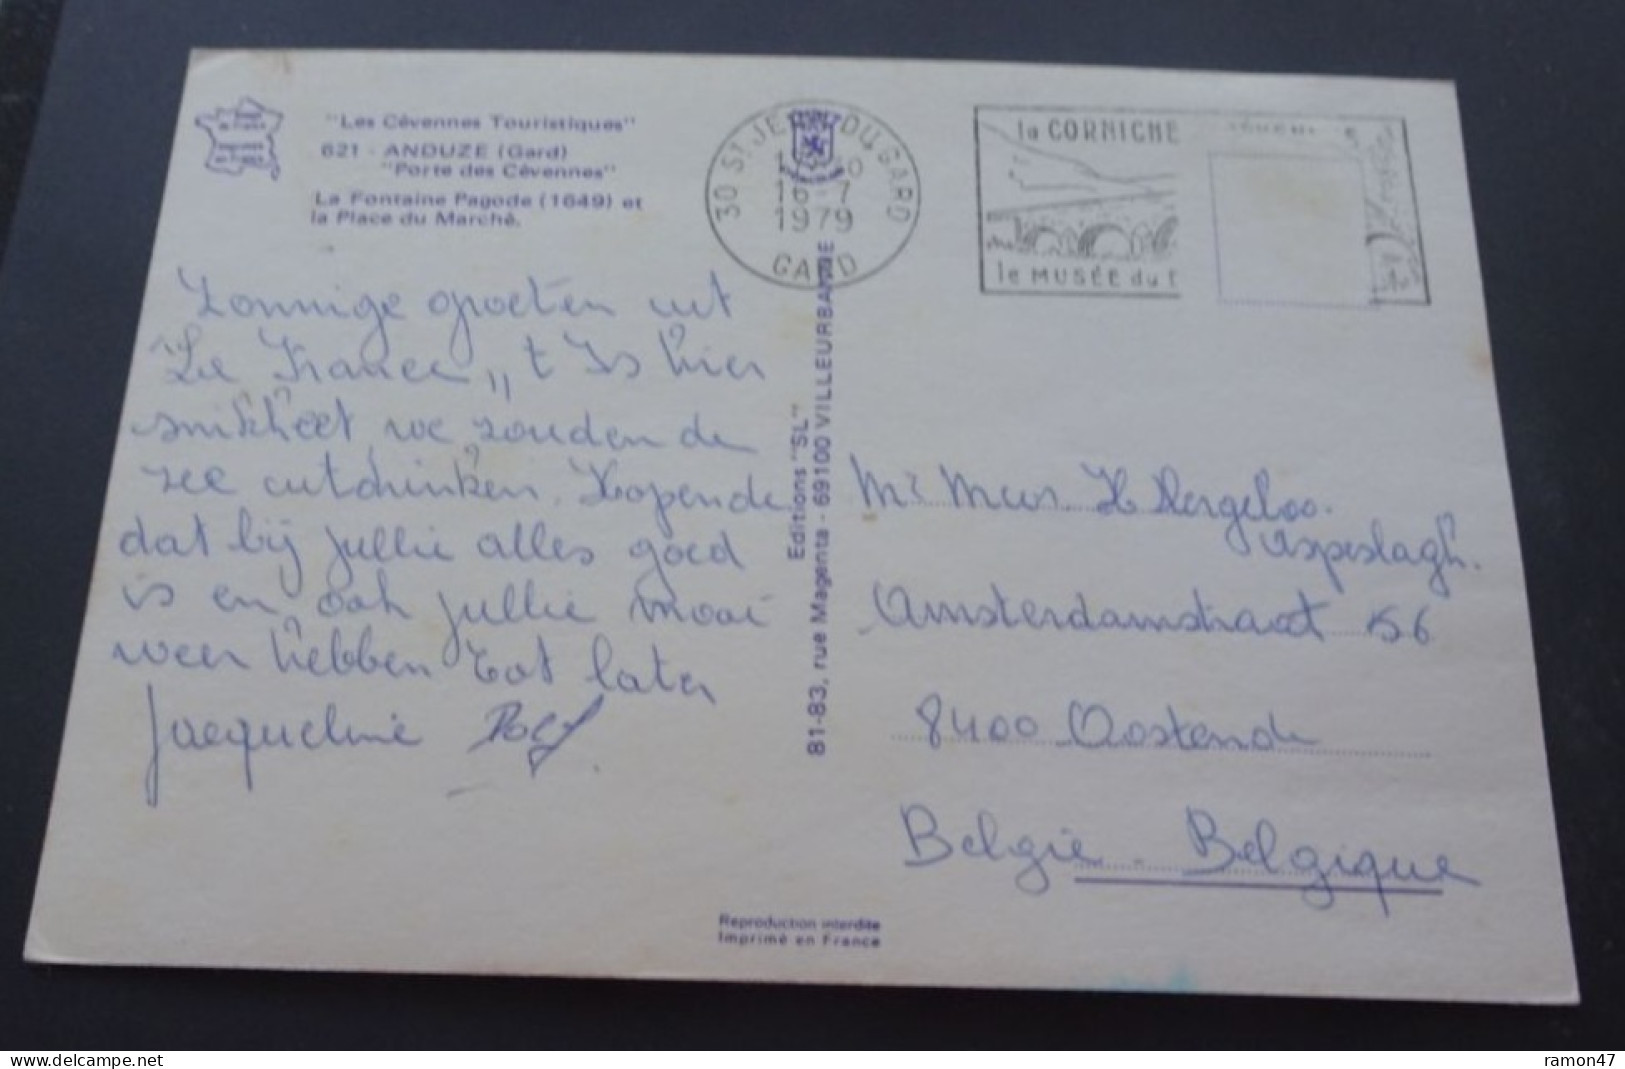 "Les Cévennes Touristiques"
621 - ANDUZE (Gard)
"Porte des Cévennes"
La Fontaine Pagode (1649) et
la Place du Marché.
30 ST JEAN DU GARD
16-7
1979
GARD
la CORNICHE
le MUSÉE du
Zonnige groeten uit
"La France" 't Is hier
snikheet, we zouden de
zee uitdrinken. Hopende
dat bij jullie alles goed
is en ook jullie mooi
weer hebben Tot later
Jacqueline
Editions "SL"
81-83, rue Magenta - 69100 VILLEURBANNE
Mr Mevr H Dergeloo.
Aspeslagh.
Amsterdamstraat 56
8400 Oostende
België - Belgique
Reproduction interdite
Imprimé en France
delcampe.net
ramon47